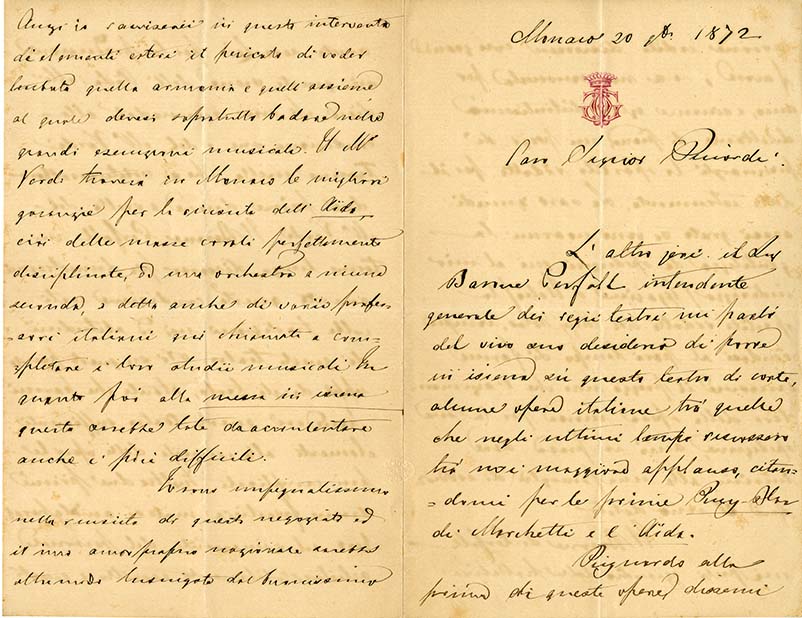 Monaco 20 9bre 1872
Caro Signor Ricordi.
L'altro jeri il Sig
Barone Perfall intendente
generale dei regii teatri mi parlò
del vivo suo desiderio di porre
in iscena su questo teatro di corte,
alcune opere italiane trà quelle
che negli ultimi tempi riscossero
trà noi maggiore applauso, citan=
=domi per le prime Ruy-Blas
di Marchetti e l'Aida.
Riguardo alla
prima di queste opere
Anzi io ravviserei in questo intervento
di elementi esteri il pericolo di veder
turbata quella armonia e quell'assieme
al quale devesi sopratutto badare nelle
grandi esecuzioni musicali. Il Mo
Verdi troverà in Monaco le migliori
garanzie per la riuscita dell'Aida
cioè delle masse corali perfettamente
disciplinate, ed una orchestra a niuna
seconda, a detta anche di varii profes=
=sori italiani qui chiamati a com=
=pletare i loro studii musicali. In
quanto poi alla messa in iscena
questa sarebbe tale da accontentare
anche i più difficili.
Io sono impegnatissimo
nella riuscita di questo negoziato ed
il mio amor proprio nazionale sarebbe
oltremodo lusingato dal